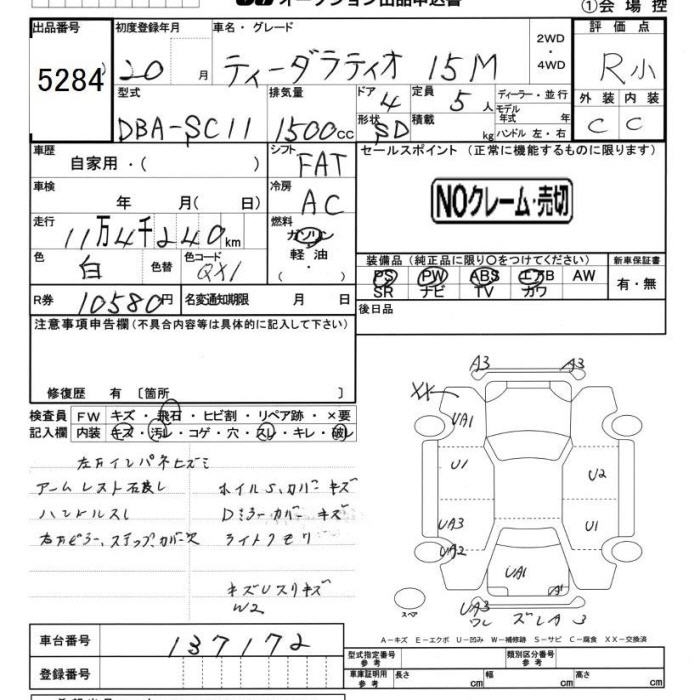 オークション出品申込書
①会場控
出品番号 初度登録年月 車名・グレード 2WD・4WD 評価点
5284 20 月 ティーダラティオ 15M R小
型式 排気量 ドア 4 定員 5人 ディーラー・並行 外装 内装
DBA-SC11 1500cc 形状 SD 積載 kg モデル年式 年 ハンドル 左・右 C C
車歴 シフト セールスポイント (正常に機能するものに限ります)
自家用・( ) FAT
車検 冷房 NOクレーム・売切
年 月( 日) AC
走行 燃料
11万4千240km ガソリン
色 白 色替 色コード QX1 軽油・
装備品(純正品に限り○をつけてください) 新車保証書
PS PW ABS エアB AW 有・無
SR ナビ TV カワ
R券 10580円 名変通知期限 月 日 後日品
注意事項申告欄(不具合内容等は具体的に記入して下さい)
修復歴 有 〔箇所 〕
検査員 FW キズ・飛石・ヒビ割・リペア跡・×要
記入欄 内装 キズ・汚レ・コゲ・穴・スレ・キレ・破レ
ハンドルスレ Dミラーカバー キズ
ライトクモリ
W2
A3 A3
XX
UA1
U1 U2
UA3 U1
UA2
UA1 A1
スペア UA3
A-キズ E-エクボ U-凹み W-補修跡 S-サビ C-腐食 XX-交換済
車台番号 137172
型式指定番号 参考 類別区分番号 参考
登録番号 車庫証明用 参考 長さ cm 幅 cm 高さ cm